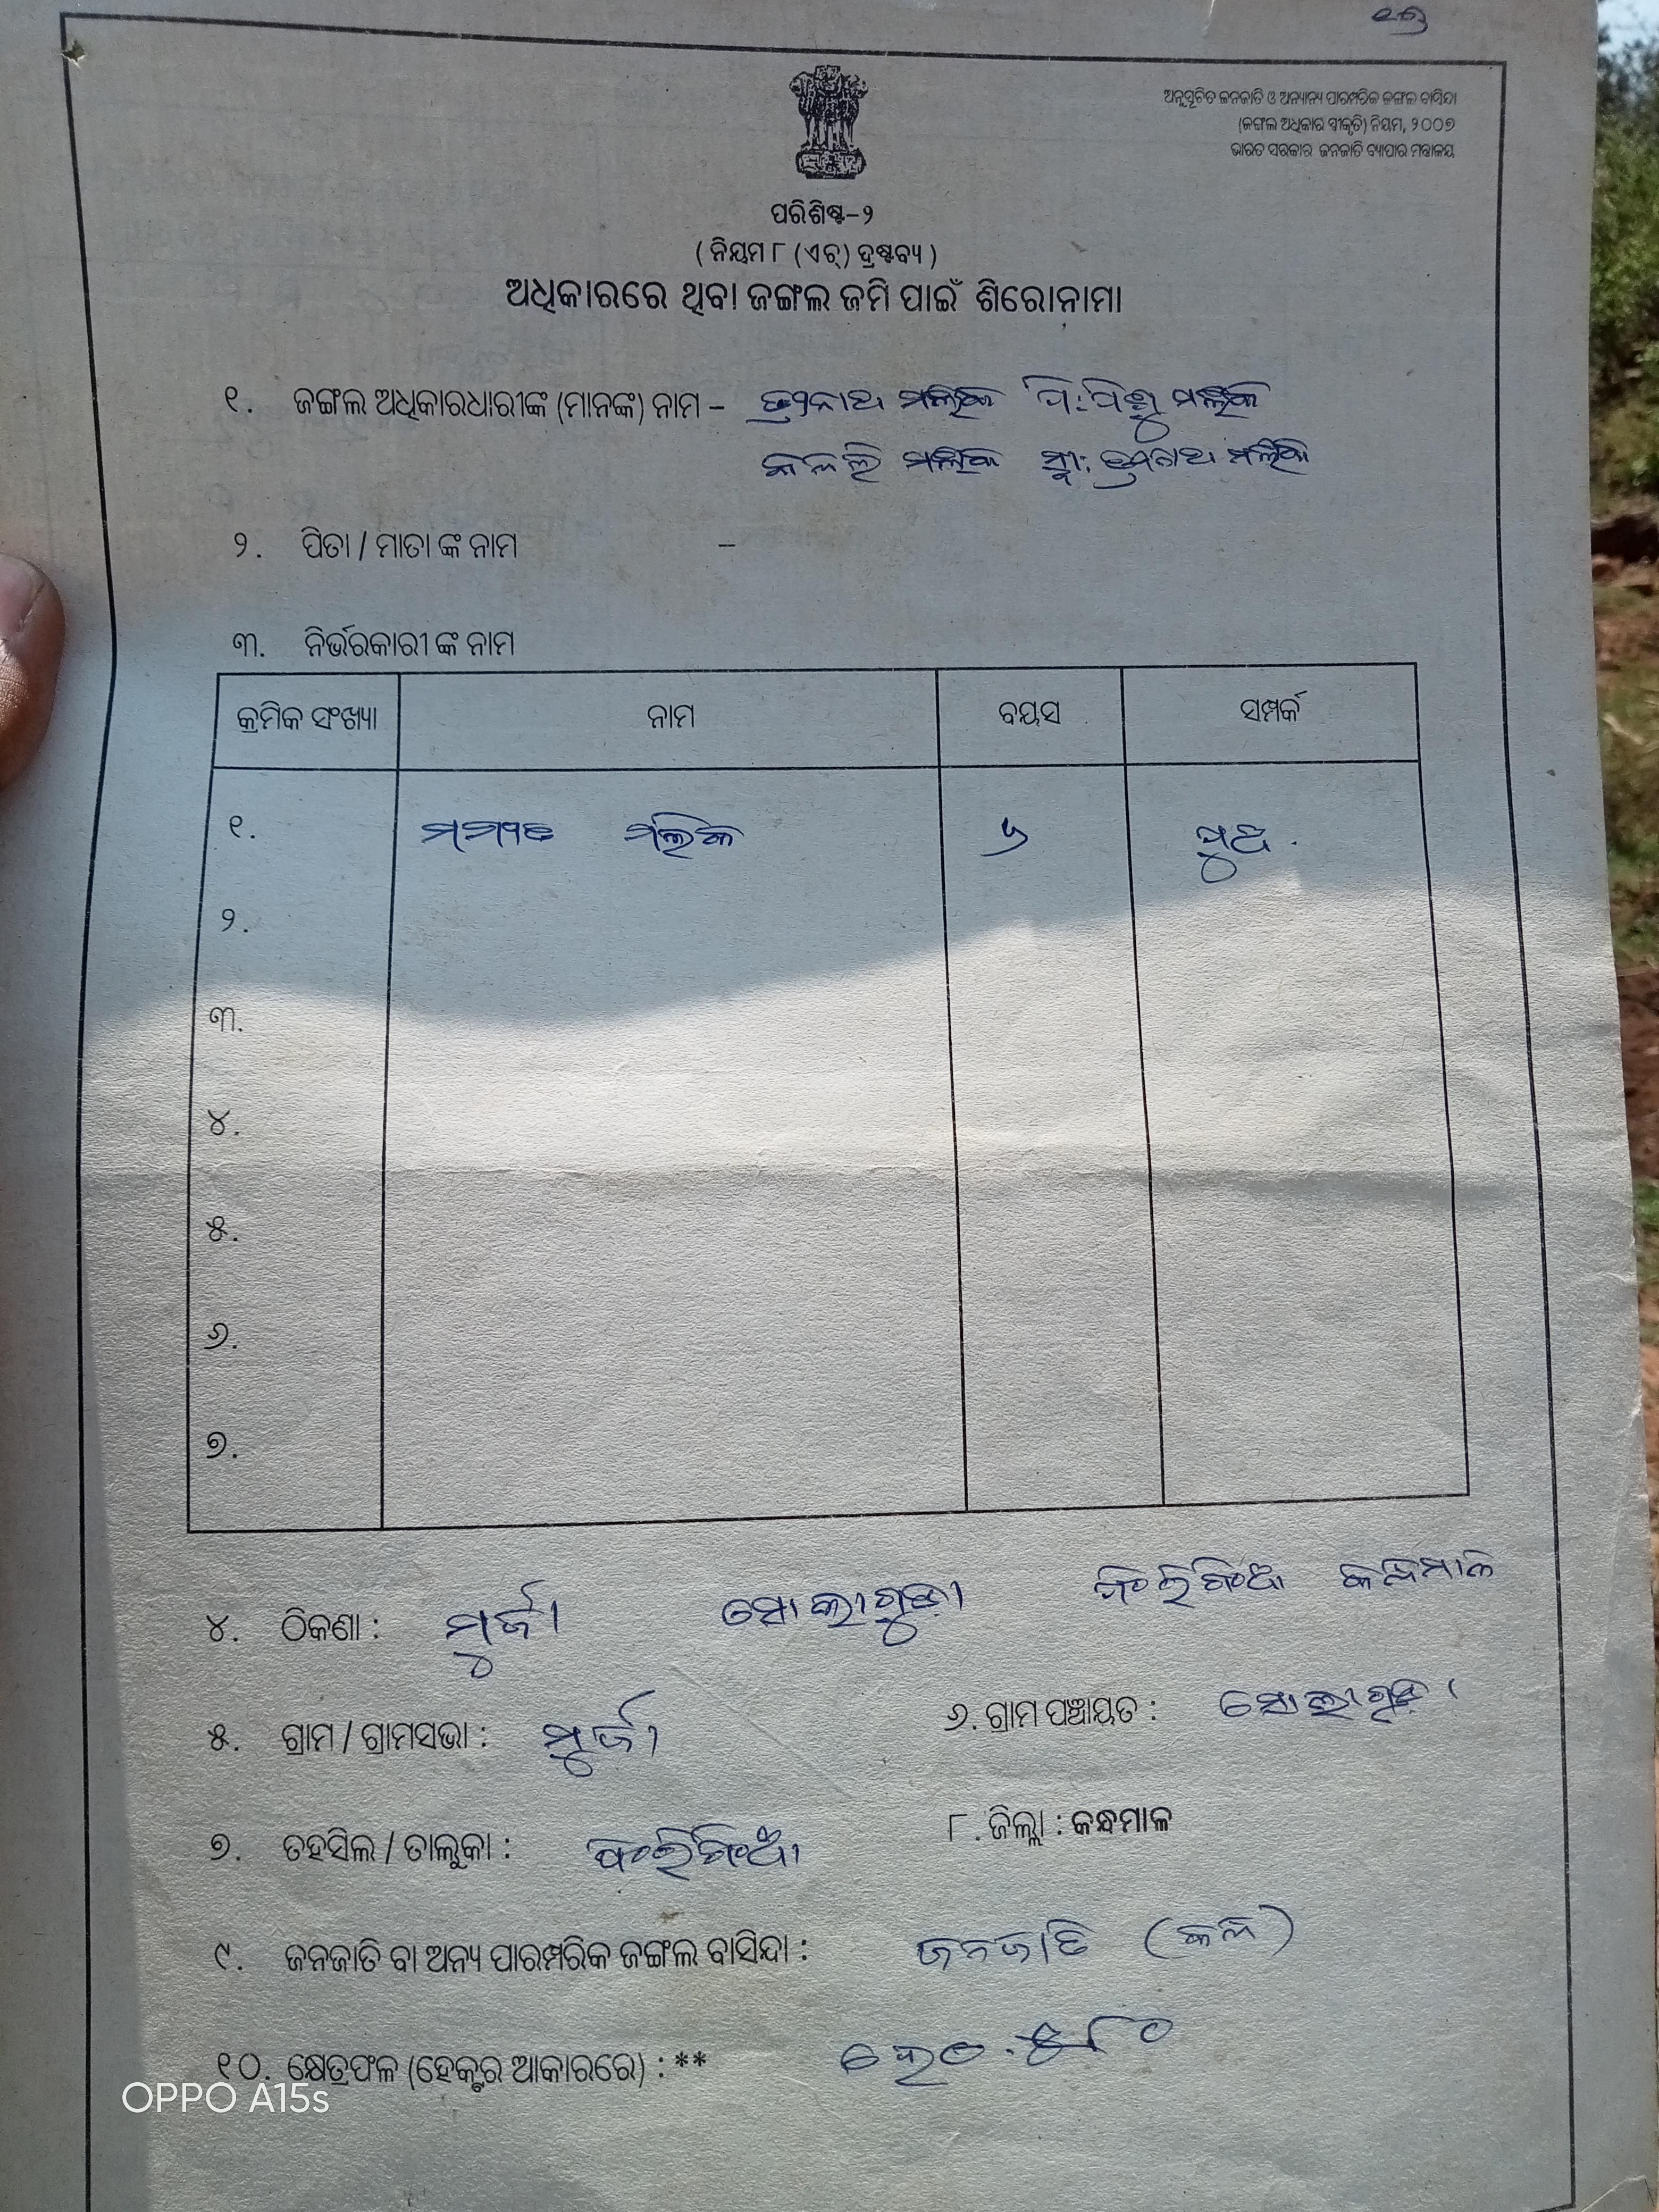 ଅନୁସୂଚିତ ଜନଜାତି ଓ ଅନ୍ୟାନ୍ୟ ପାରମ୍ପରିକ ଜଙ୍ଗଲ ବାସିନ୍ଦା
(ଜଙ୍ଗଲ ଅଧିକାର ସ୍ୱୀକୃତି) ନିୟମ, ୨୦୦୭
ଭାରତ ସରକାର ଜନଜାତି ବ୍ୟାପାର ମନ୍ତ୍ରାଳୟ
ପରିଶିଷ୍ଟ-୨
( ନିୟମ ୮ (ଏଚ୍) ଦ୍ରଷ୍ଟବ୍ୟ )
ଅଧିକାରରେ ଥିବା ଜଙ୍ଗଲ ଜମି ପାଇଁ ଶିରୋନାମା
୧. ଜଙ୍ଗଲ ଅଧିକାରଧାରୀଙ୍କ (ମାନଙ୍କ) ନାମ – ମଲିକ ପି: ମଲିକ
ମଲିକ ସ୍ତ୍ରୀ: ମଲିକ
୨. ପିତା / ମାତା ଙ୍କ ନାମ –
୩. ନିର୍ଭରକାରୀ ଙ୍କ ନାମ
କ୍ରମିକ ସଂଖ୍ୟା ନାମ ବୟସ ସମ୍ପର୍କ
୧. ମଲିକ ୬ ପୁଅ.
୨.
୩.
୪.
୫.
୬.
୭.
୪. ଠିକଣା : ମୁର୍ଜା କନ୍ଧମାଳ
୫. ଗ୍ରାମ / ଗ୍ରାମସଭା : ମୁର୍ଜା ୬. ଗ୍ରାମ ପଞ୍ଚାୟତ :
୭. ତହସିଲ / ତାଲୁକା : ୮. ଜିଲ୍ଲା : କନ୍ଧମାଳ
୯. ଜନଜାତି ବା ଅନ୍ୟ ପାରମ୍ପରିକ ଜଙ୍ଗଲ ବାସିନ୍ଦା : ଜନଜାତି (କନ୍ଧ)
୧୦. କ୍ଷେତ୍ରଫଳ (ହେକ୍ଟର ଆକାରରେ) : **
OPPO A15s